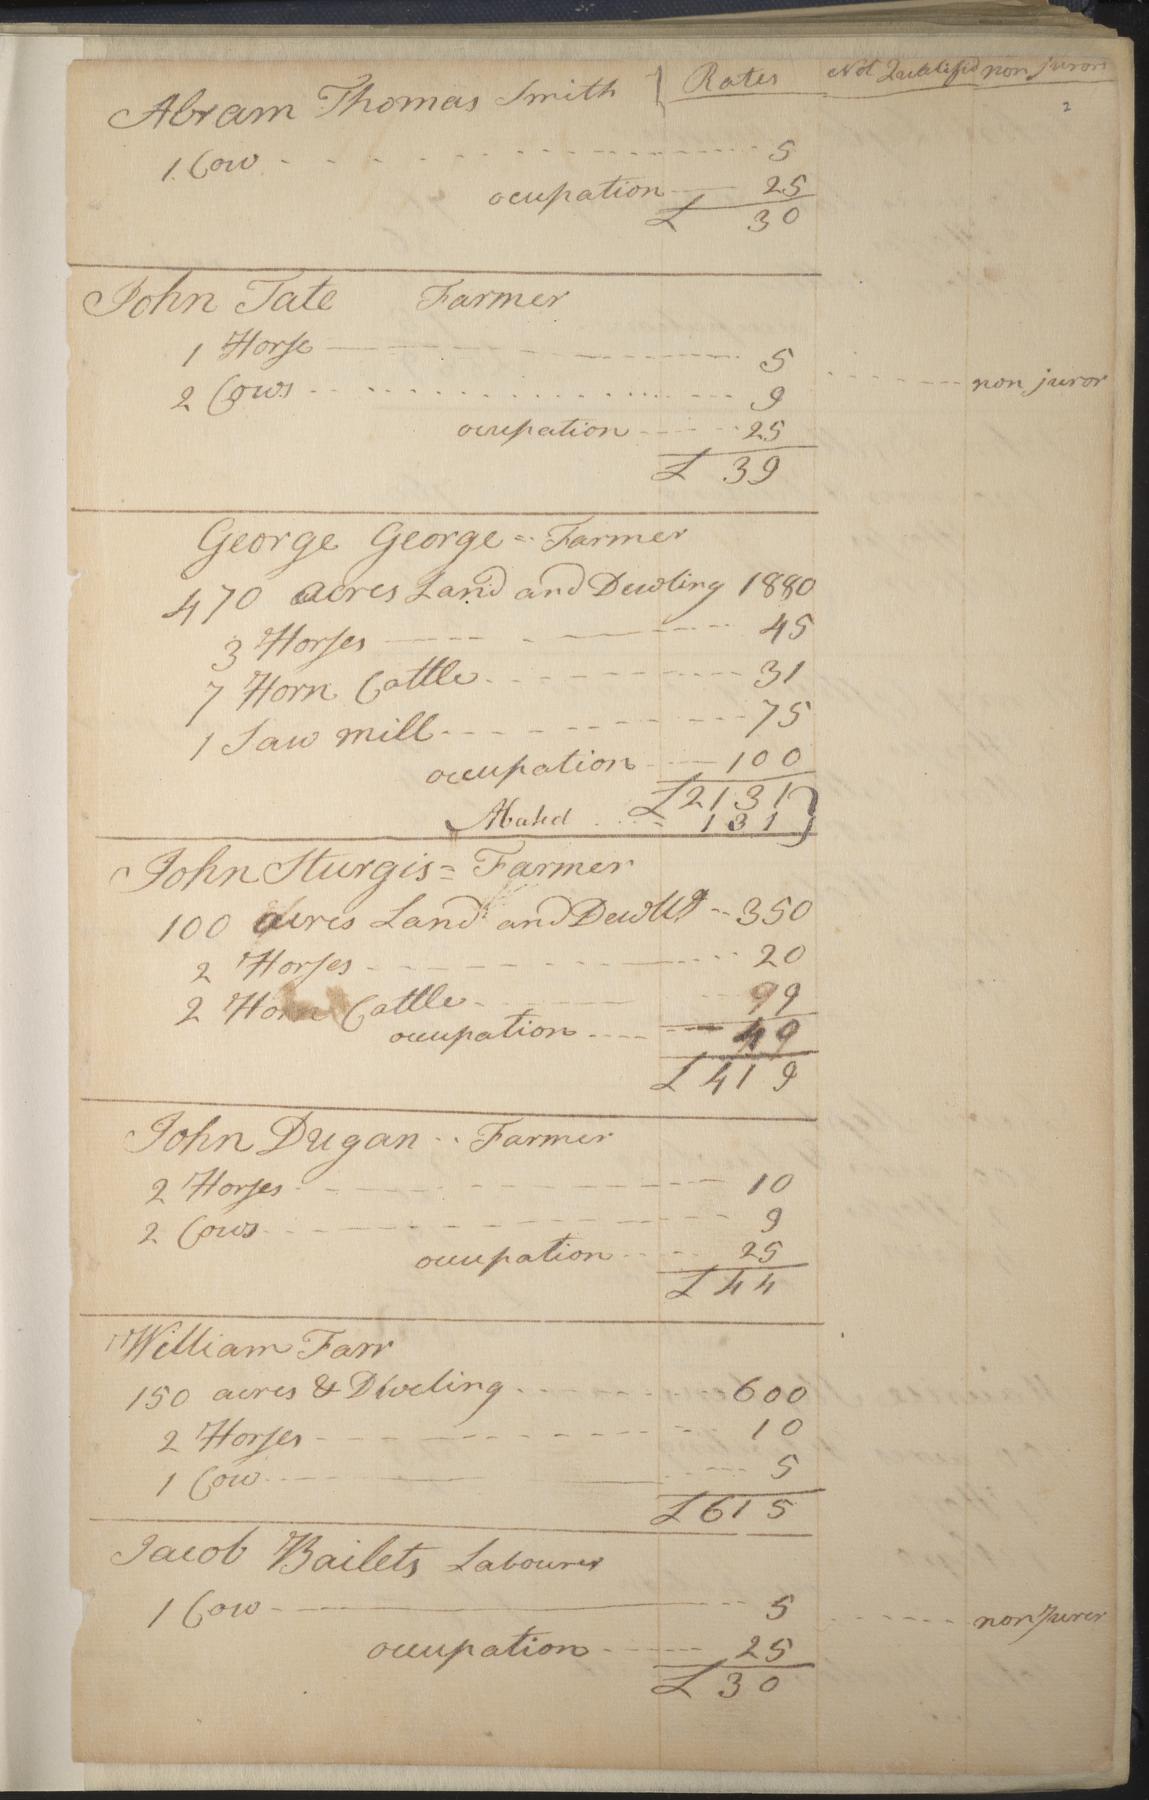 Abram Thomas Smith } Rates Not Qualified non jurors
2
1 Cow 5
ocupation 25
£ 30
John Tate Farmer
1 Horse 5
non juror
2 Cows 9
ocupation 25
£ 39
George George = Farmer
470 acres Land and Dewling 1880
3 Horses 45
7 Horn Cattle 31
1 Saw mill 75
occupation 100
£2131
Abated 131
John Sturgis = Farmer
100 acres Land and Dewllg 350
2 Horses 20
2 Horn Cattle 99
occupation 49
£ 419
John Dugan Farmer
2 Horses 10
2 Cows 9
occupation 25
£ 44
William Farr
150 acres & Dweling 600
2 Horses 10
1 Cow 5
£615
Jacob Bailets Labourer
1 Cow 5 non Jurer
occupation 25
£ 30